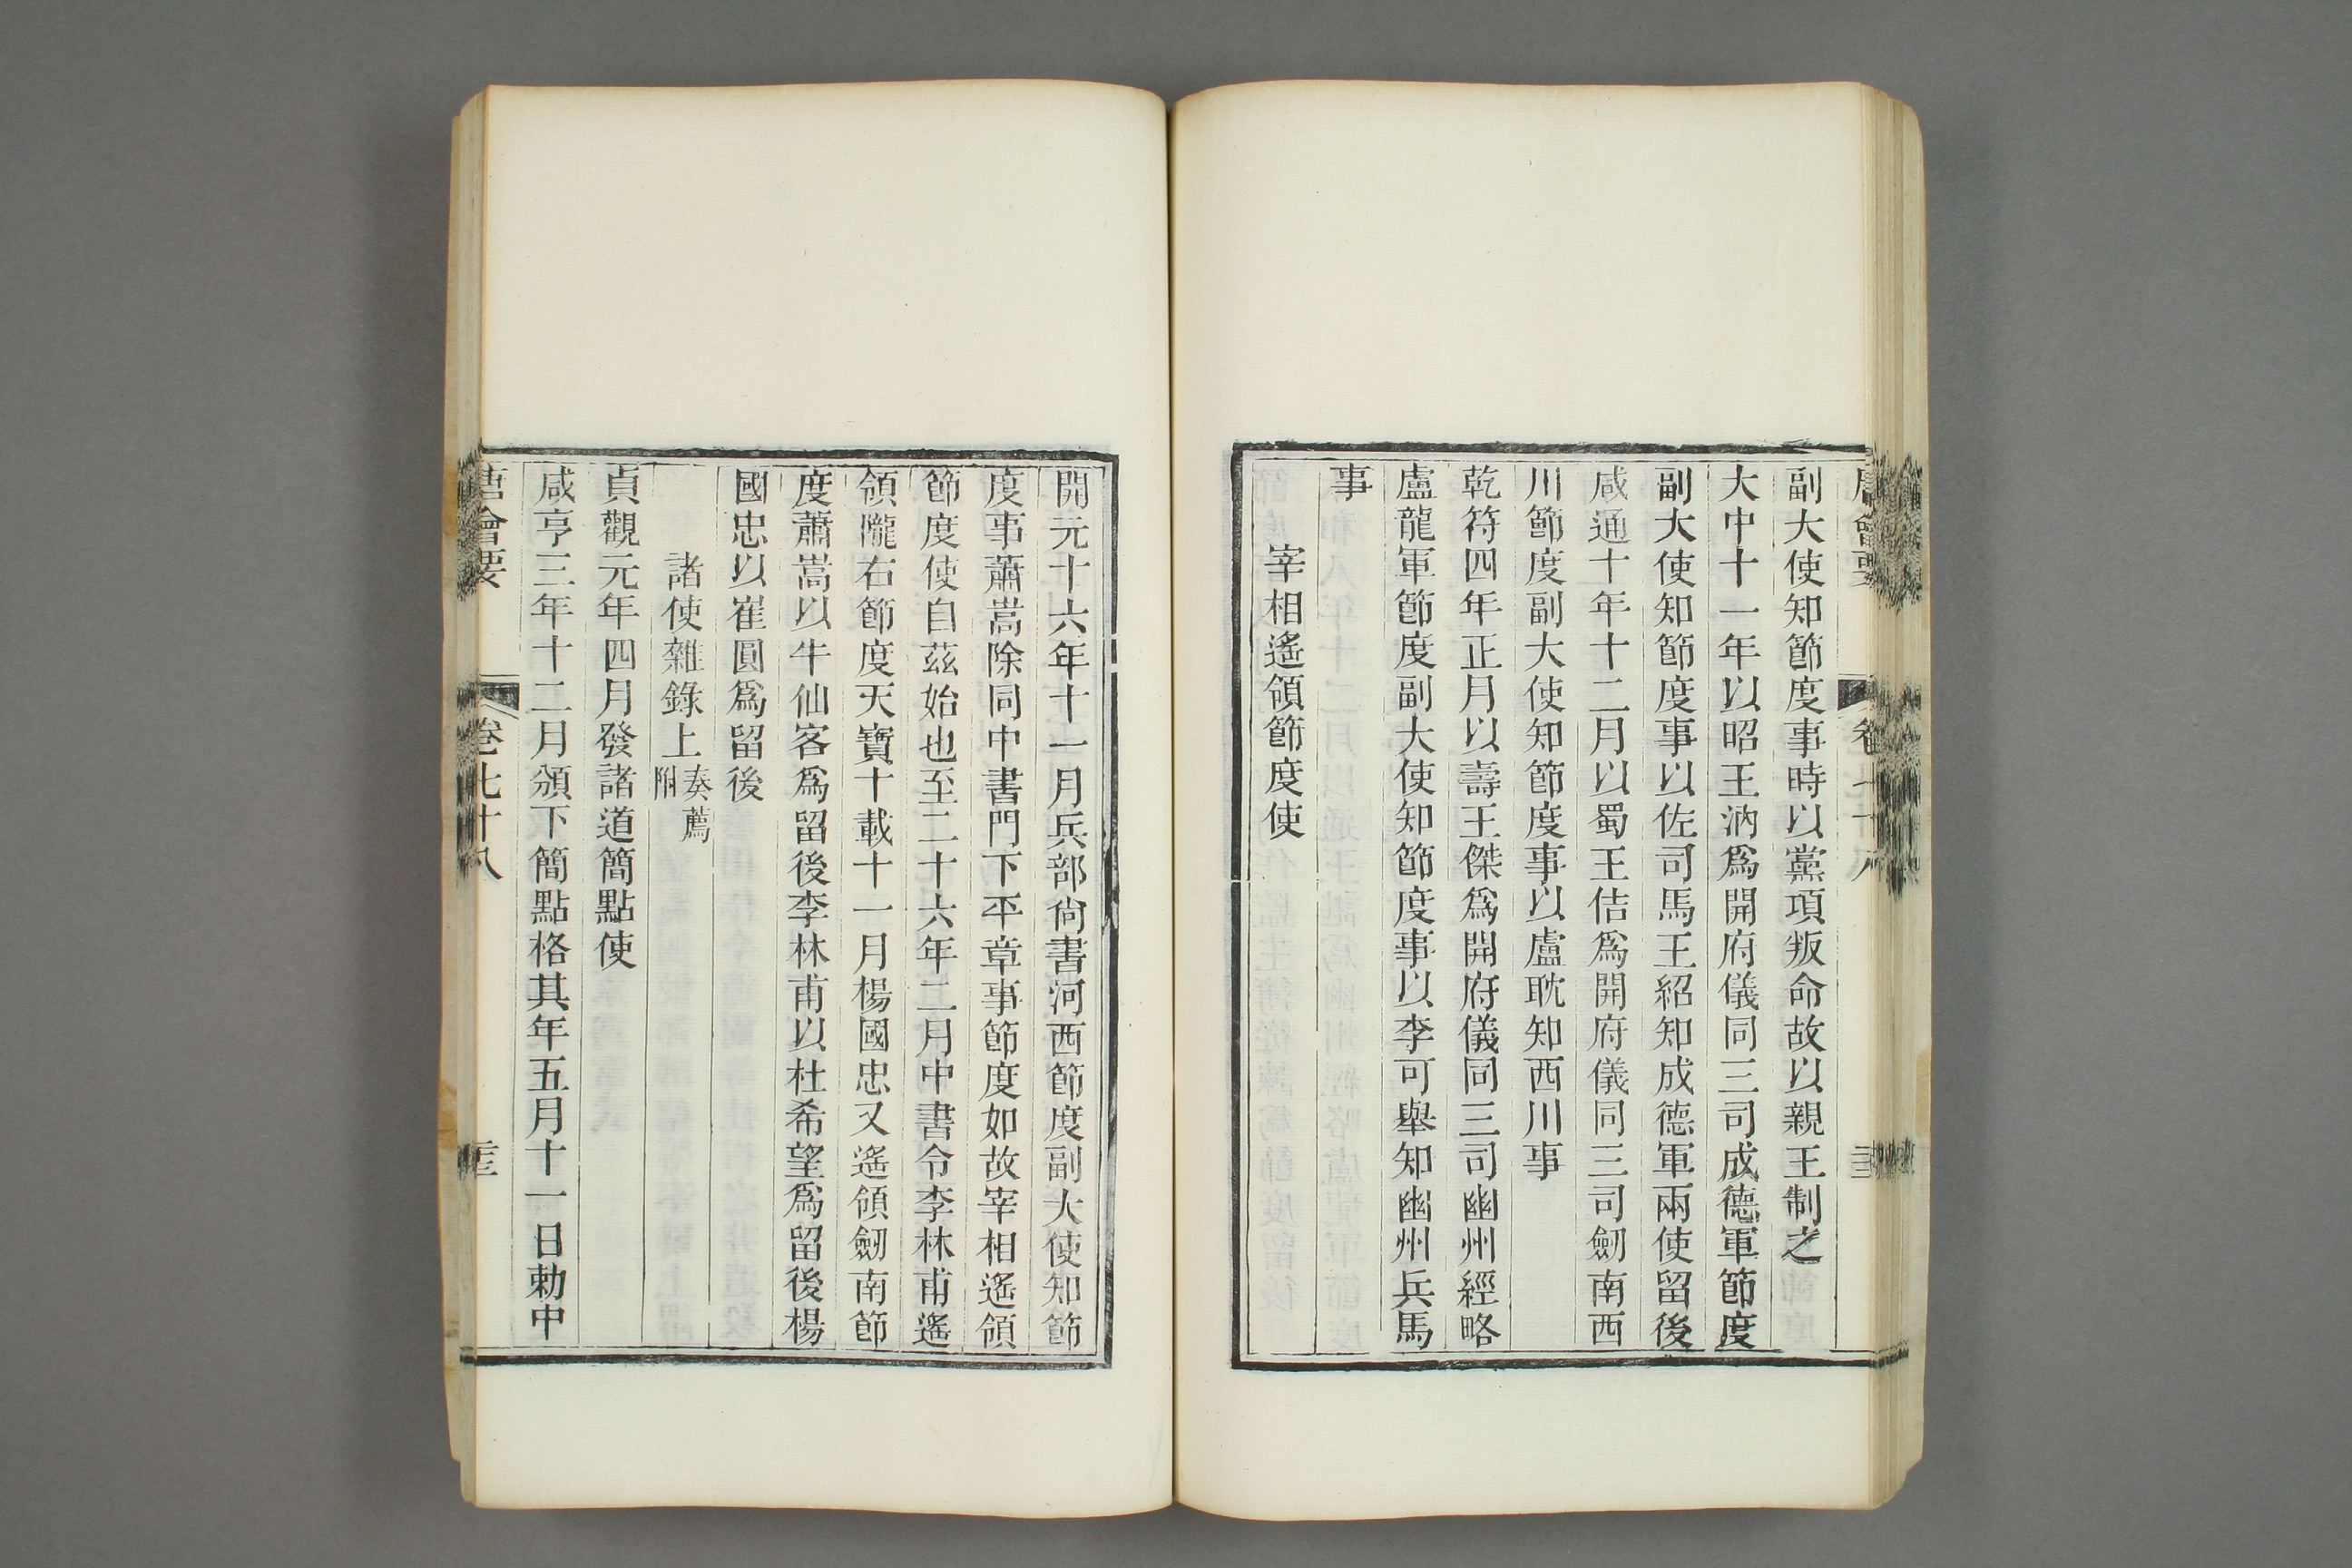 副大使知節度事時以黨項叛命故以親王制之
大中十一年以昭王汭爲開府儀同三司成德軍節度
副大使知節度事以佐司馬王紹知成德軍兩使留後
咸通十年十二月以蜀王佶爲開府儀同三司劒南西
川節度副大使知節度事以盧耽知西川事
乾符四年正月以壽王傑爲開府儀同三司幽州經略
盧龍軍節度副大使知節度事以李可舉知幽州兵馬
事
宰相遙領節度使
開元十六年十一月兵部尙書河西節度副大使知節
度事蕭嵩除同中書門下平章事節度如故宰相遙領
節度使自茲始也至二十六年二月中書令李林甫遙
領隴右節度天寶十載十一月楊國忠又遙領劒南節
度蕭嵩以牛仙客爲留後李林甫以杜希望爲留後楊
國忠以崔圓爲留後
諸使雜錄上奏薦附
貞觀元年四月發諸道簡點使
咸亨三年十二月頒下簡點格其年五月十一日勅中
唐會要 卷七十八